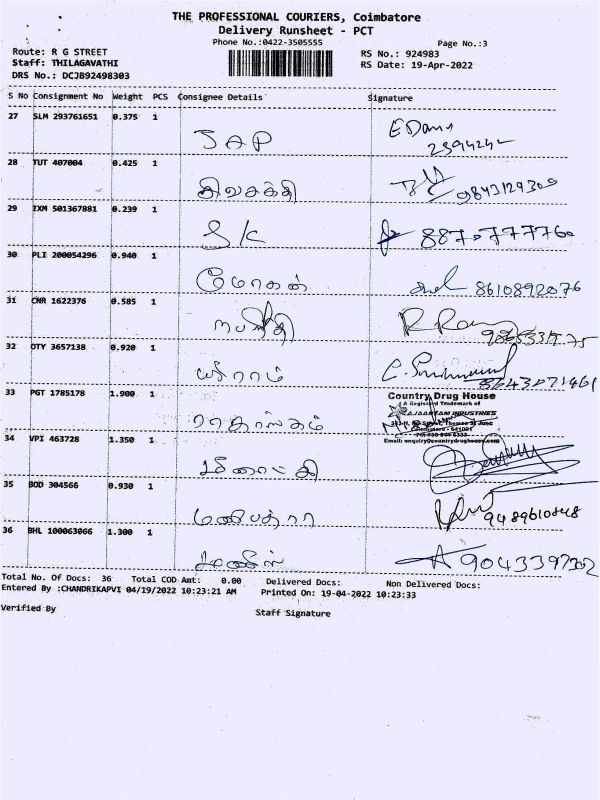 THE PROFESSIONAL COURIERS, Coimbatore
Delivery Runsheet - PCT
Phone No.:0422-3505555
Page No.:3
Route: R G STREET
RS No.: 924983
Staff: THILAGAVATHI
RS Date: 19-Apr-2022
DRS No.: DCJB92498303
S No Consignment No Weight PCS Consignee Details Signature
27 SLM 293761651 0.375 1
JAP
28 TUT 407004 0.425 1
சிவசக்தி 9843129300
29 IXM 501367881 0.239 1
S/K 8870777760
30 PLI 200054296 0.940 1
மோகன் 8610892076
31 CNR 1622376 0.585 1
32 OTY 3657138 0.920 1
ஸ்ரீராம்
33 PGT 1785178 1.900 1
Country Drug House
A Registered Trademark of
RAJAANTAM INDUSTRIES
34 VPI 463728 1.350 1
Email: enquiry@countrydrughouse.com
35 BOD 304566 0.930 1
மணிபத்ரா 9489610848
36 BHL 100063066 1.300 1
9043397302
Total No. Of Docs: 36 Total COD Amt: 0.00 Delivered Docs: Non Delivered Docs:
Entered By :CHANDRIKAPVI 04/19/2022 10:23:21 AM Printed On: 19-04-2022 10:23:33
Verified By Staff Signature